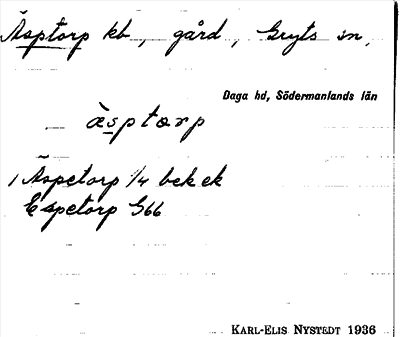 Äsptorp kb, gård, Gryts sn,
Daga hd, Södermanlands län
ä̀sptorp
1 Äspetorp 1/4 bek ek
Espetorp G66
KARL-ELIS NYSTEDT 1936